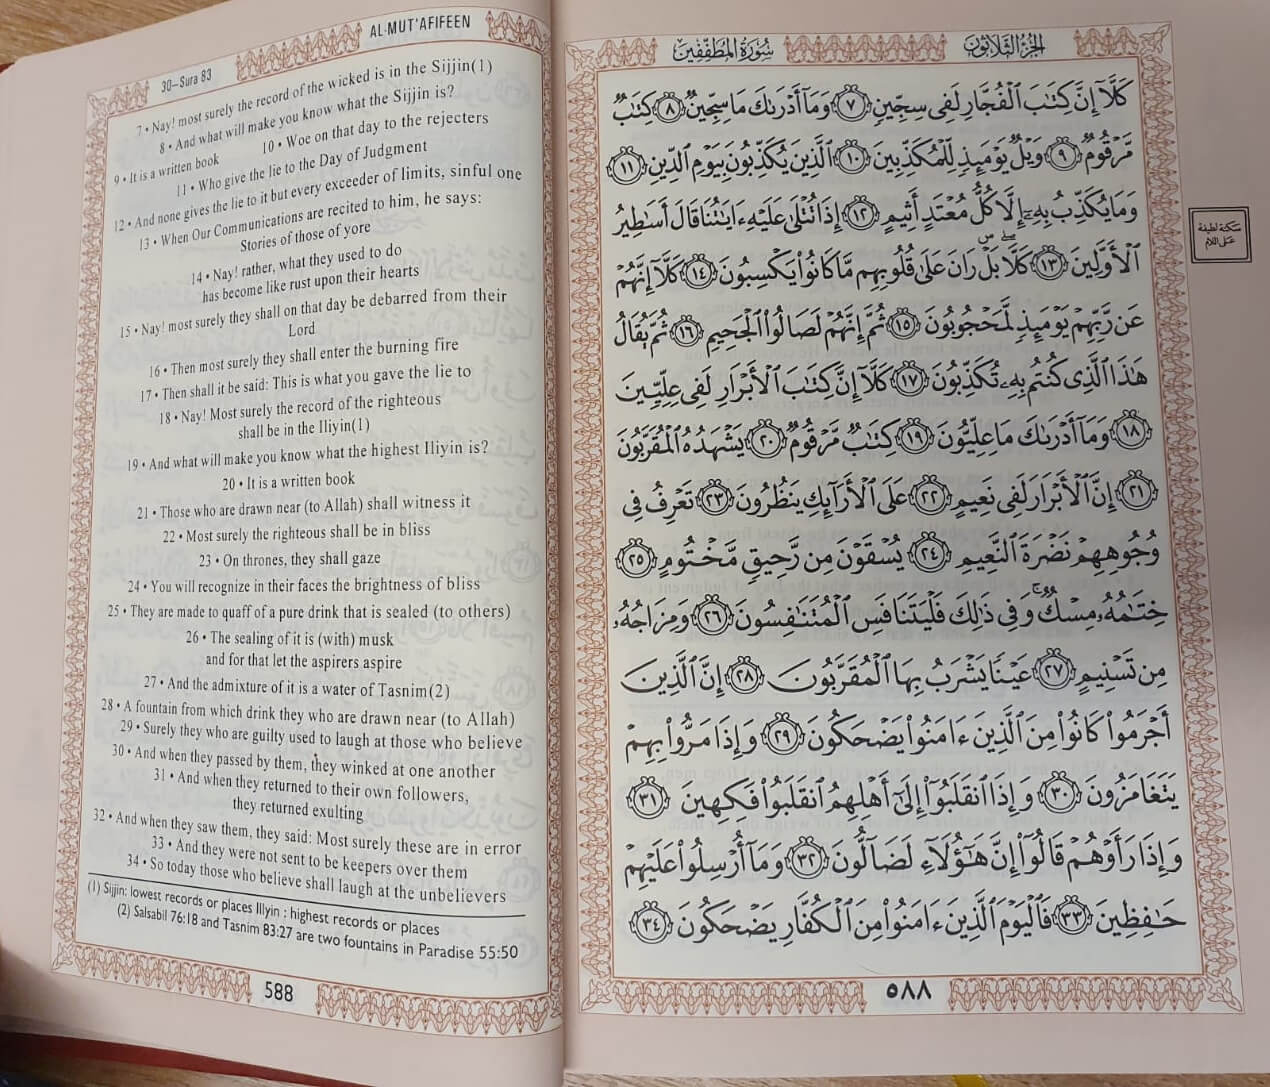 AL-MUT'AFIFEEN
30–Sura 83
7 • Nay! most surely the record of the wicked is in the Sijjin(1)
8 • And what will make you know what the Sijjin is?
9 • It is a written book
10 • Woe on that day to the rejecters
11 • Who give the lie to the Day of Judgment
12 • And none gives the lie to it but every exceeder of limits, sinful one
13 • When Our Communications are recited to him, he says:
Stories of those of yore
14 • Nay! rather, what they used to do
has become like rust upon their hearts
15 • Nay! most surely they shall on that day be debarred from their
Lord
16 • Then most surely they shall enter the burning fire
17 • Then shall it be said: This is what you gave the lie to
18 • Nay! Most surely the record of the righteous
shall be in the Iliyin(1)
19 • And what will make you know what the highest Iliyin is?
20 • It is a written book
21 • Those who are drawn near (to Allah) shall witness it
22 • Most surely the righteous shall be in bliss
23 • On thrones, they shall gaze
24 • You will recognize in their faces the brightness of bliss
25 • They are made to quaff of a pure drink that is sealed (to others)
26 • The sealing of it is (with) musk
and for that let the aspirers aspire
27 • And the admixture of it is a water of Tasnim(2)
28 • A fountain from which drink they who are drawn near (to Allah)
29 • Surely they who are guilty used to laugh at those who believe
30 • And when they passed by them, they winked at one another
31 • And when they returned to their own followers,
they returned exulting
32 • And when they saw them, they said: Most surely these are in error
33 • And they were not sent to be keepers over them
34 • So today those who believe shall laugh at the unbelievers
(1) Sijjin: lowest records or places Illyin : highest records or places
(2) Salsabil 76:18 and Tasnim 83:27 are two fountains in Paradise 55:50
588
الجزء الثلاثون
سورة المطففين
كَلَّآ إِنَّ كِتَٰبَ ٱلْفُجَّارِ لَفِى سِجِّينٍ ٧ وَمَآ أَدْرَىٰكَ مَا سِجِّينٌ ٨ كِتَٰبٌ
مَّرْقُومٌ ٩ وَيْلٌ يَوْمَئِذٍ لِّلْمُكَذِّبِينَ ١٠ ٱلَّذِينَ يُكَذِّبُونَ بِيَوْمِ ٱلدِّينِ ١١
وَمَا يُكَذِّبُ بِهِۦٓ إِلَّا كُلُّ مُعْتَدٍ أَثِيمٍ ١٢ إِذَا تُتْلَىٰ عَلَيْهِ ءَايَٰتُنَا قَالَ أَسَٰطِيرُ
ٱلْأَوَّلِينَ ١٣ كَلَّا ۖ بَلْ ۜ رَانَ عَلَىٰ قُلُوبِهِم مَّا كَانُوا۟ يَكْسِبُونَ ١٤ كَلَّآ إِنَّهُمْ
عَن رَّبِّهِمْ يَوْمَئِذٍ لَّمَحْجُوبُونَ ١٥ ثُمَّ إِنَّهُمْ لَصَالُوا۟ ٱلْجَحِيمِ ١٦ ثُمَّ يُقَالُ
هَٰذَا ٱلَّذِى كُنتُم بِهِۦ تُكَذِّبُونَ ١٧ كَلَّآ إِنَّ كِتَٰبَ ٱلْأَبْرَارِ لَفِى عِلِّيِّينَ
١٨ وَمَآ أَدْرَىٰكَ مَا عِلِّيُّونَ ١٩ كِتَٰبٌ مَّرْقُومٌ ٢٠ يَشْهَدُهُ ٱلْمُقَرَّبُونَ
٢١ إِنَّ ٱلْأَبْرَارَ لَفِى نَعِيمٍ ٢٢ عَلَى ٱلْأَرَآئِكِ يَنظُرُونَ ٢٣ تَعْرِفُ فِى
وُجُوهِهِمْ نَضْرَةَ ٱلنَّعِيمِ ٢٤ يُسْقَوْنَ مِن رَّحِيقٍ مَّخْتُومٍ ٢٥
خِتَٰمُهُۥ مِسْكٌ ۚ وَفِى ذَٰلِكَ فَلْيَتَنَافَسِ ٱلْمُتَنَٰفِسُونَ ٢٦ وَمِزَاجُهُۥ
مِن تَسْنِيمٍ ٢٧ عَيْنًا يَشْرَبُ بِهَا ٱلْمُقَرَّبُونَ ٢٨ إِنَّ ٱلَّذِينَ
أَجْرَمُوا۟ كَانُوا۟ مِنَ ٱلَّذِينَ ءَامَنُوا۟ يَضْحَكُونَ ٢٩ وَإِذَا مَرُّوا۟ بِهِمْ
يَتَغَامَزُونَ ٣٠ وَإِذَا ٱنقَلَبُوٓا۟ إِلَىٰٓ أَهْلِهِمُ ٱنقَلَبُوا۟ فَكِهِينَ ٣١
وَإِذَا رَأَوْهُمْ قَالُوٓا۟ إِنَّ هَٰٓؤُلَآءِ لَضَآلُّونَ ٣٢ وَمَآ أُرْسِلُوا۟ عَلَيْهِمْ
حَٰفِظِينَ ٣٣ فَٱلْيَوْمَ ٱلَّذِينَ ءَامَنُوا۟ مِنَ ٱلْكُفَّارِ يَضْحَكُونَ ٣٤
سكتة لطيفة
على اللام
٥٨٨